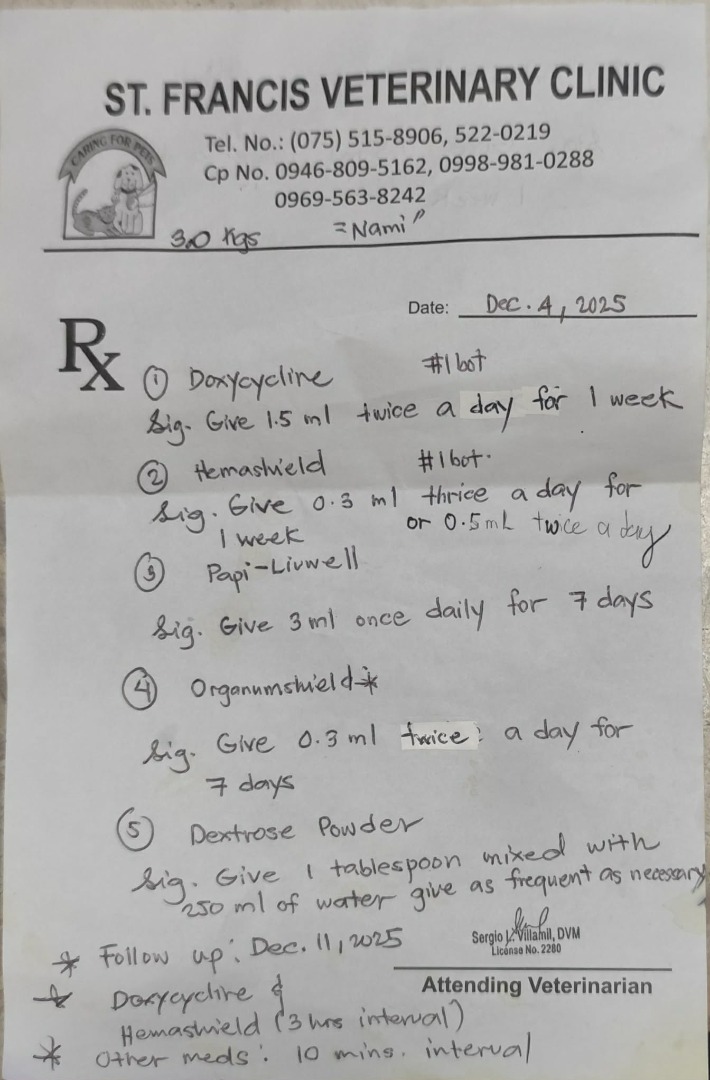 ST. FRANCIS VETERINARY CLINIC
CARING FOR PETS
Tel. No.: (075) 515-8906, 522-0219
Cp No. 0946-809-5162, 0998-981-0288
0969-563-8242
3.0 Kgs = Nami"
Date: Dec. 4, 2025
Rx
① Doxycycline #1bot
Sig. Give 1.5 ml twice a day for 1 week
② Hemashield #1bot.
Sig. Give 0.3 ml thrice a day for
1 week or 0.5mL twice a day
③ Papi-Livwell
Sig. Give 3ml once daily for 7 days
④ Organumshield*
Sig. Give 0.3 ml twice a day for
7 days
⑤ Dextrose Powder
Sig. Give 1 tablespoon mixed with
250 ml of water give as frequent as necessary
Sergio L. Villamil, DVM
License No. 2280
Attending Veterinarian
* Follow up: Dec. 11, 2025
* Doxycycline &
Hemashield (3 hrs interval)
* Other meds: 10 mins. interval